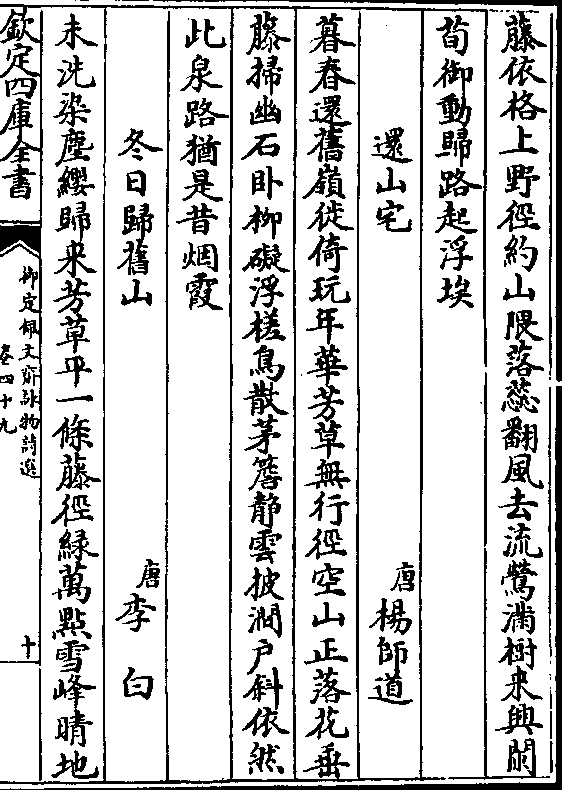 藤依格上野徑約山隈落蕊翻風去流鶯滿樹来興闌
荀御動歸路起浮埃
還山宅
唐楊師道
暮春還舊嶺徙倚玩年華芳草無行徑空山正落花垂
藤掃幽石卧柳礙浮槎鳥散茅簷静雲披澗户斜依然
此泉路猶是昔烟霞
冬日歸舊山
唐李白
未洗染塵纓歸来芳草平一條藤徑緑萬點雪峰晴地
欽定四庫全書
御定佩文齋詠物詩選
卷四十九
十